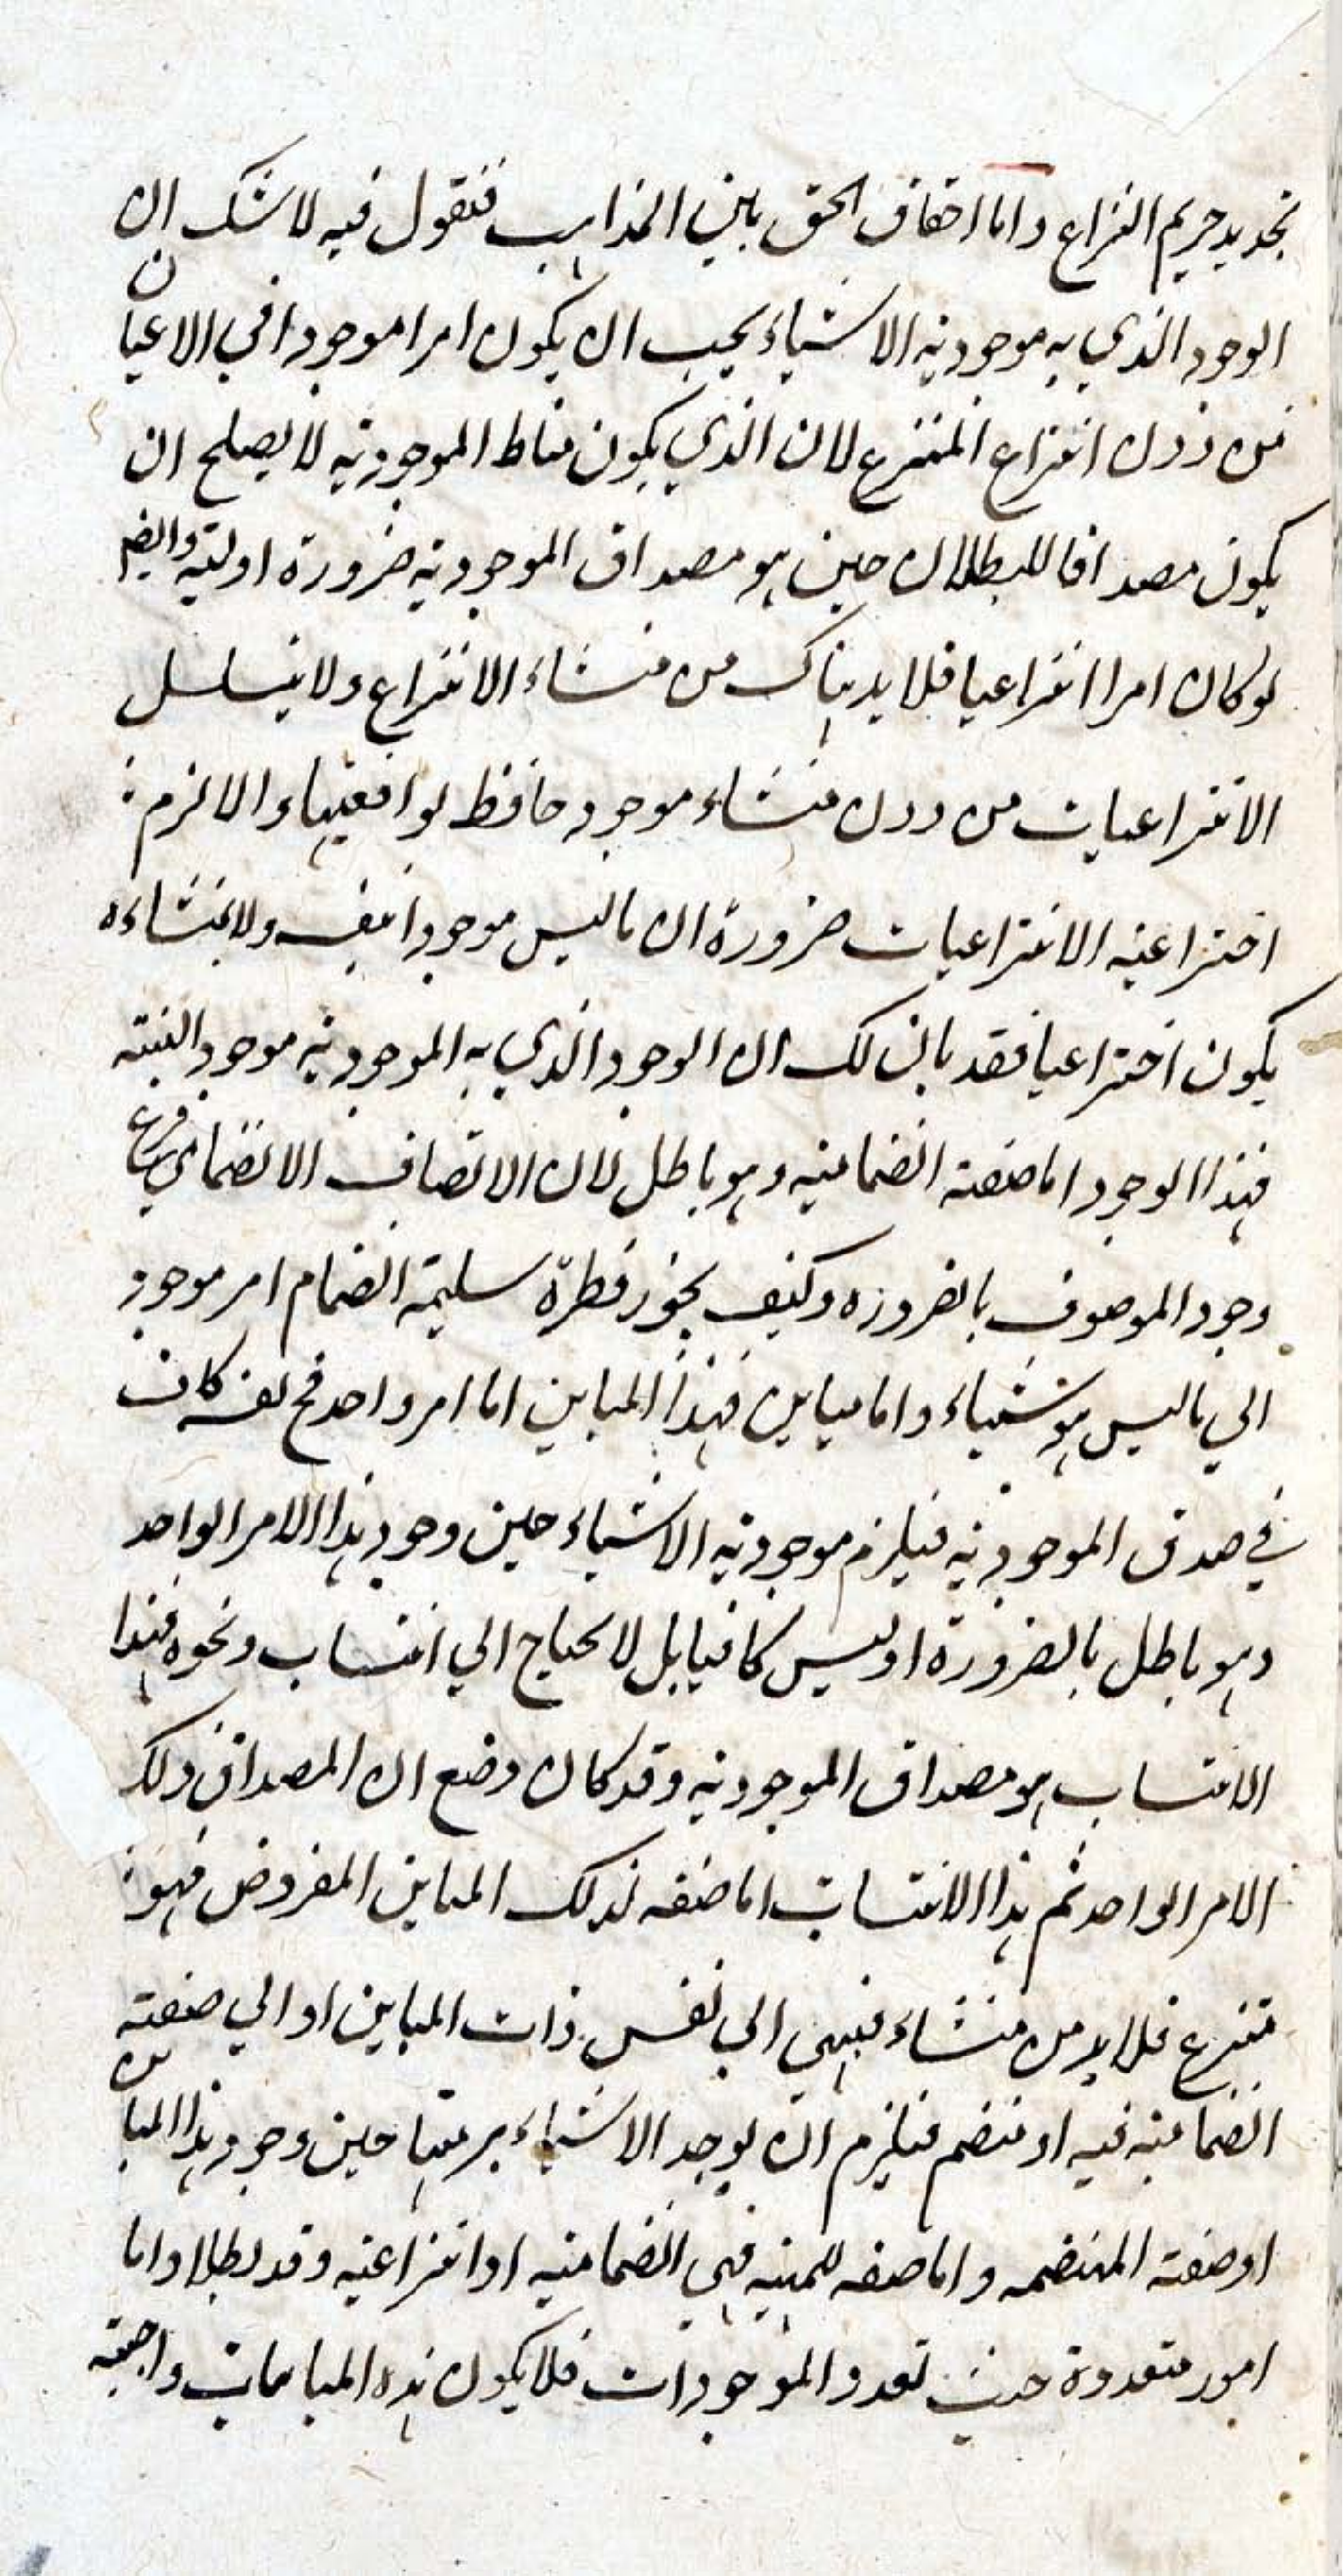 تحديد حريم النزاع واما احقاق الحق بين المذاهب فنقول فيه لا شك ان
الوجود الذي به موجودية الاشياء يجب ان يكون امرا موجودا في الاعيان
من دون انتزاع المنتزع لان الذي يكون مناط الموجودية لا يصلح ان
يكون مصداقا للبطلان حين هو مصداق الموجودية ضرورة اولية وايضا
لو كان امرا انتزاعيا فلا بد هناك من منشاء الانتزاع ولا يتسلسل
الانتزاعيات من دون منشاء موجود حافظ لواقعيتها والا لزم
اختراعية الانتزاعيات ضرورة ان ما ليس موجودا بنفسه ولا بمنشاءه
يكون اختراعيا فقد بان لك ان الوجود الذي به الموجودية موجود البتة
فهذا الوجود اما صفة انضمامية وهو باطل لان الاتصاف الانضمامي فرع
وجود الموصوف بالضرورة وكيف يجوز فطرة سليمة انضمام امر موجود
الي ما ليس هو شياء واما مباين فهذا المباين اما امر واحد فح نفسه كاف
في صدق الموجودية فيلزم موجودية الاشياء حين وجود هذا الامر الواحد
وهو باطل بالضرورة او ليس كافيا بل لا يحتاج الي انتساب ونحوه فهذا
الانتساب هو مصداق الموجودية وقد كان وضع ان المصداق ذلك
الامر الواحد ثم هذا الانتساب اما صفة لذلك المباين المفروض فهو
منتزع فلا بد من منشاء فينتهي الي نفس ذات المباين او الي صفة
انضمامية فيه او منضم فيلزم ان يوجد الاشياء برمتها حين وجود هذا المباين
او صفة المنضمة واما صفة للمهية فهي انضمامية او انتزاعية وقد بطلا واما
امور متعددة حسب تعدد الموجودات فلا يكون هذه المباينات واجبة